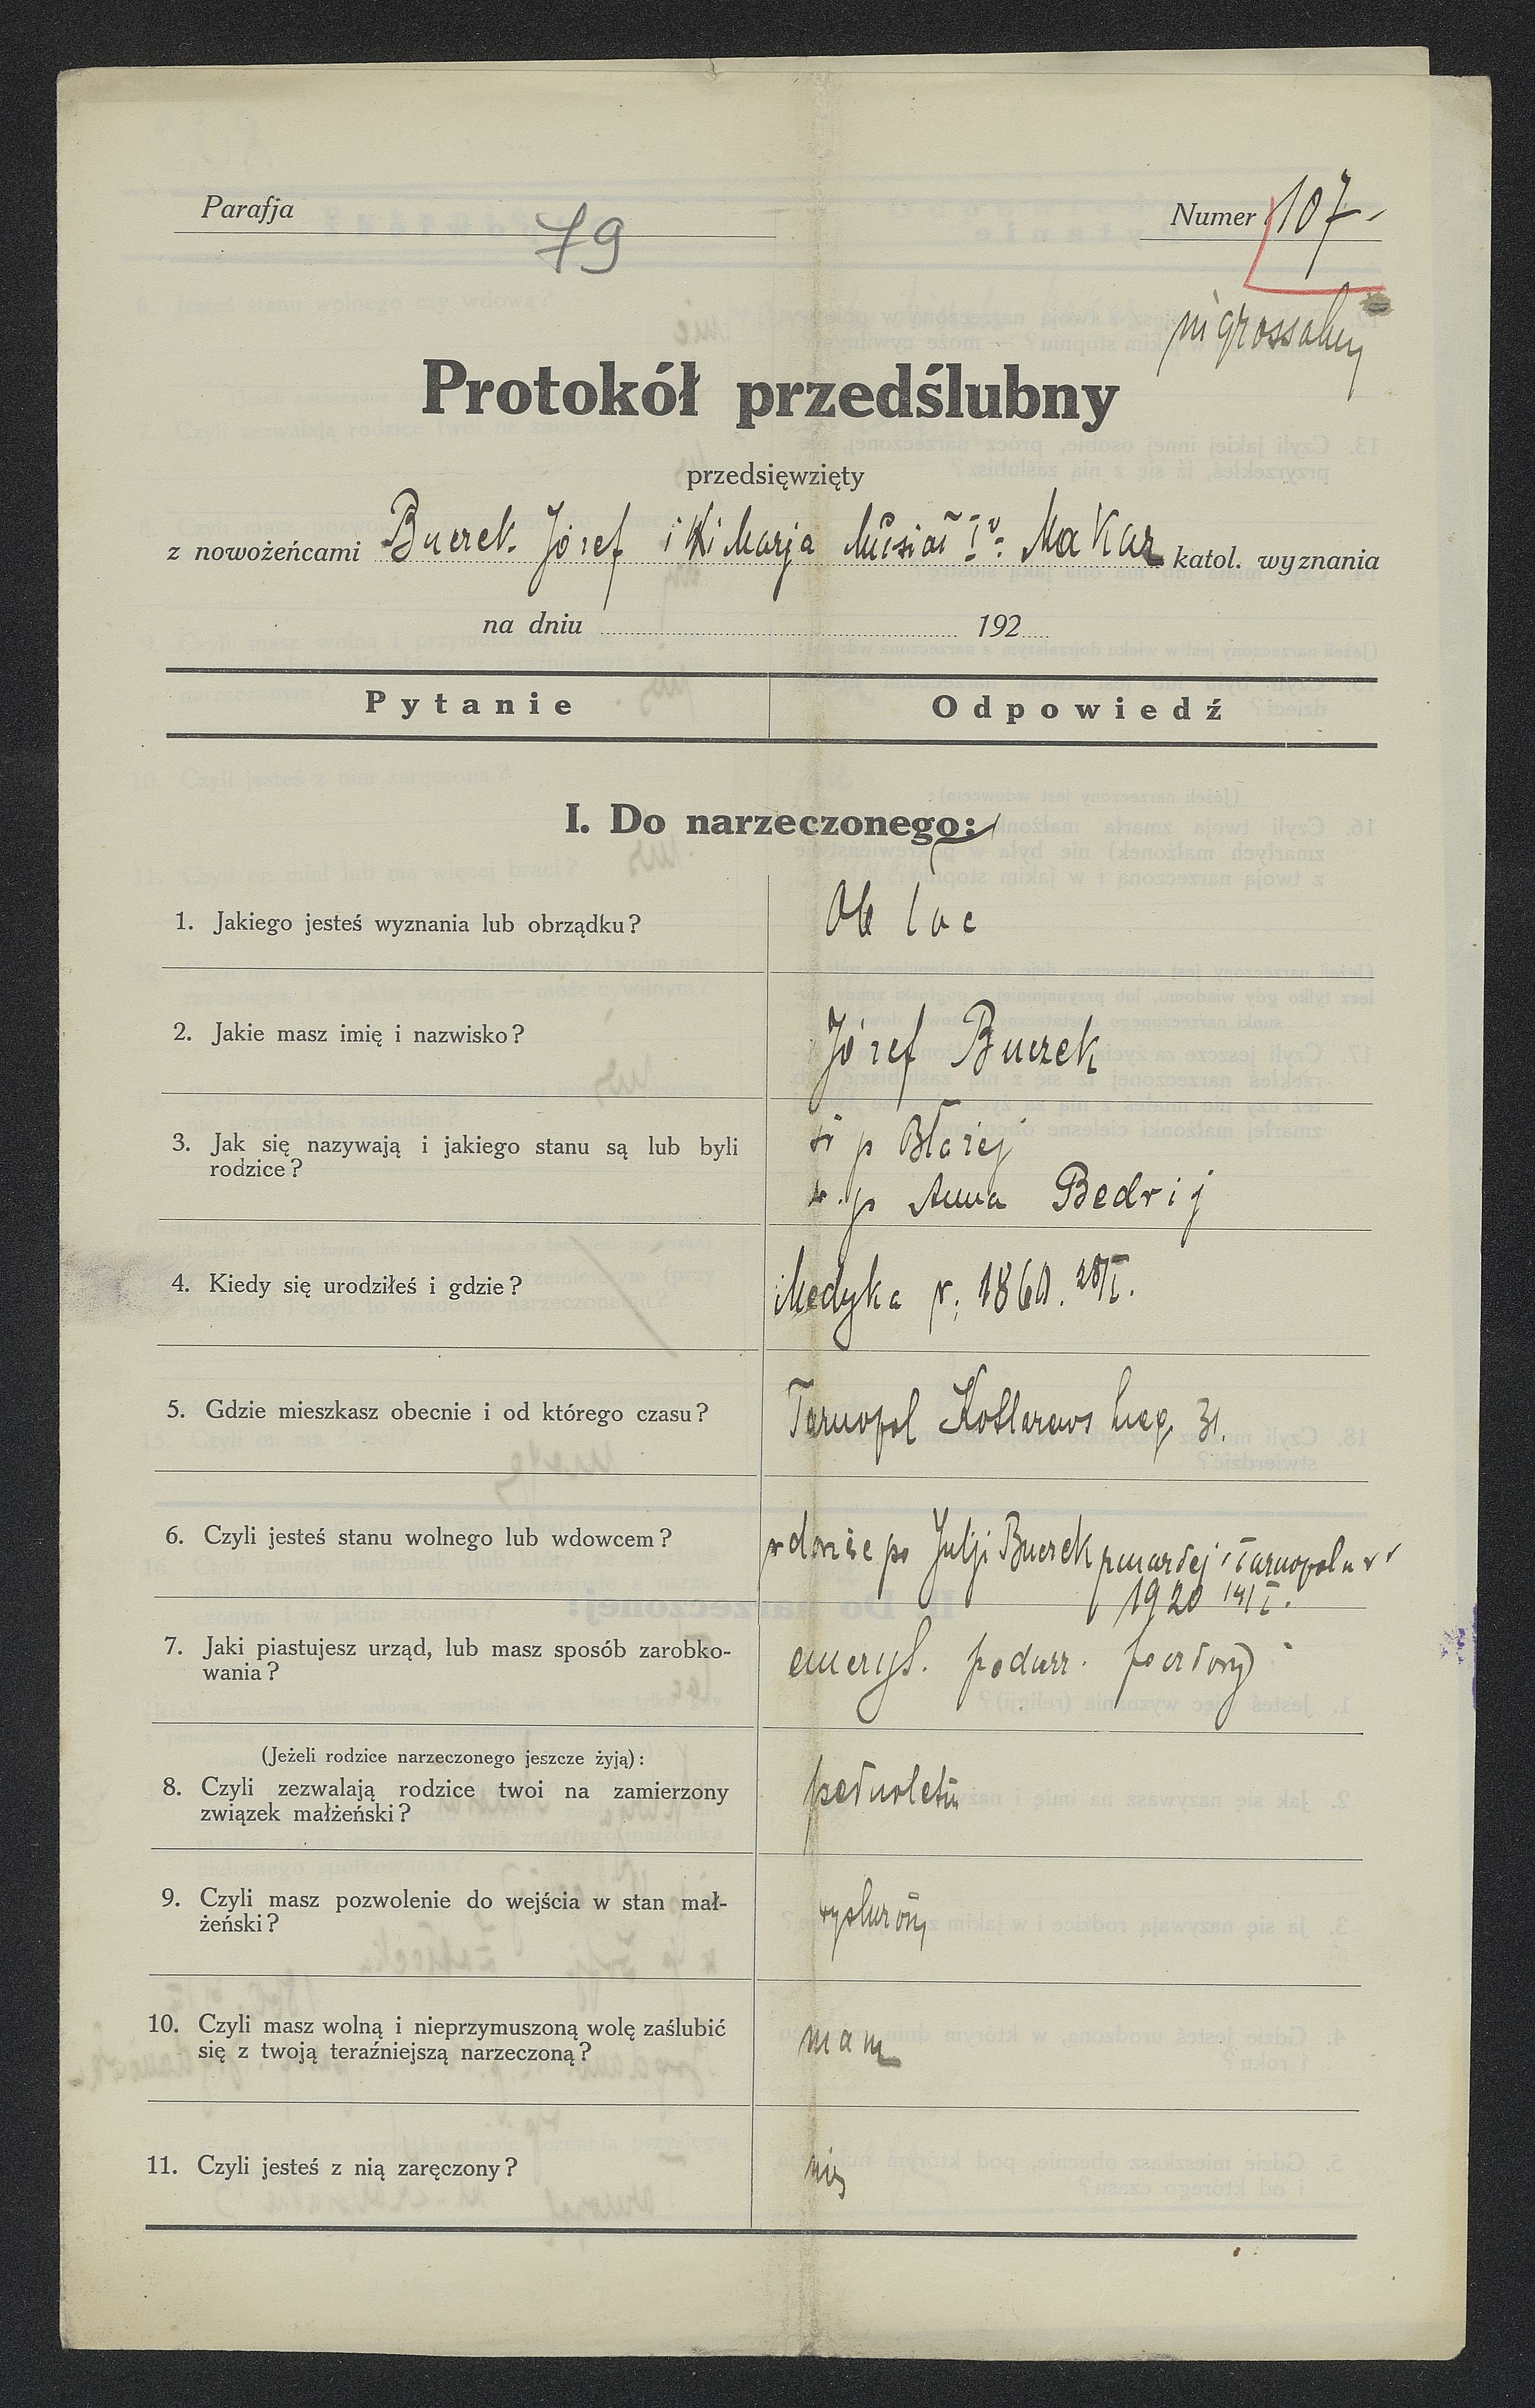 Parafja
79
Numer 107
Protokół przedślubny
przedsięwzięty
z nowożeńcami Buczek Józef i Marja Musiał Iv: Makar katol. wyznania
na dniu 192
Pytanie Odpowiedź
I. Do narzeczonego:
1. Jakiego jesteś wyznania lub obrządku?
Ob łac
2. Jakie masz imię i nazwisko?
Józef Buczek
3. Jak się nazywają i jakiego stanu są lub byli
rodzice?
ś p Błażej
ś. p Anna Bedrij
4. Kiedy się urodziłeś i gdzie?
Medyka r. 1860.
5. Gdzie mieszkasz obecnie i od którego czasu?
Tarnopol 31.
6. Czyli jesteś stanu wolnego lub wdowcem?
wdowiec po Julji Buczek zmarłej w Tarnopolu
1920 14/I.
7. Jaki piastujesz urząd, lub masz sposób zarobko-
wania?
emeryt. podurz. pocztowy
(Jeżeli rodzice narzeczonego jeszcze żyją):
8. Czyli zezwalają rodzice twoi na zamierzony
związek małżeński?
pełnoletni
9. Czyli masz pozwolenie do wejścia w stan mał-
żeński?
wysłużony
10. Czyli masz wolną i nieprzymuszoną wolę zaślubić
się z twoją teraźniejszą narzeczoną?
mam
11. Czyli jesteś z nią zaręczony?